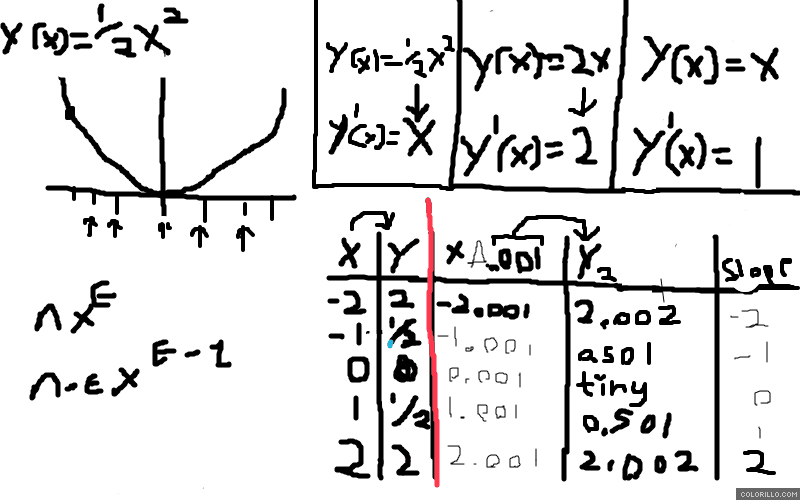 Y(x)=1/2x²
Y(x)=1/2x²
Y'(x)=x
Y(x)=2x
Y'(x)=2
Y(x)=x
Y'(x)=1
nx^E
n·E·x^E-1
x Y x .001 Y₂ Slope
-2 2 -2.001 2.002 -2
-1 1/2 -1.001 0.501 -1
0 0 0.001 tiny 0
1 1/2 1.001 0.501 1
2 2 2.001 2.002 2
COLORILLO.COM